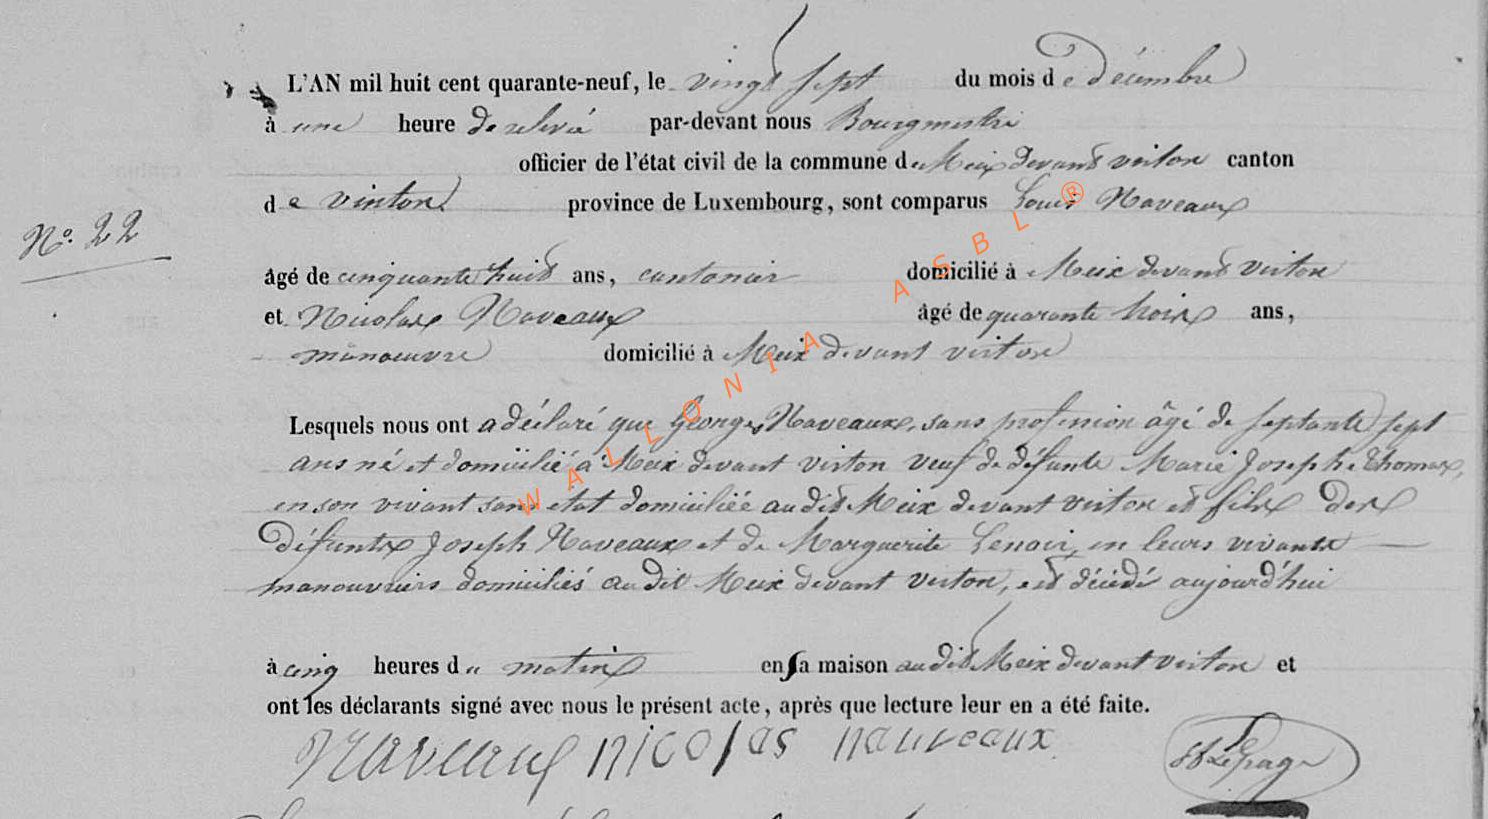 L'AN mil huit cent quarante-neuf, le vingt sept du mois de décembre
à une heure de relevé par-devant nous Bourgmestre
officier de l'état civil de la commune de Meix devant virton canton
de virton province de Luxembourg, sont comparus Louis Naveaux
N°. 22
âgé de cinquante huit ans, cantonier domicilié à Meix devant virton
et Nicolas Naveaux âgé de quarante trois ans,
manoeuvre domicilié à Meix devant virton
Lesquels nous ont a déclaré que Georges Naveaux, sans profession âgé de septante sept
ans né et domicilié à Meix devant virton veuf de défunte Marie Josephe Thomas,
en son vivant sans etat domiciliée audit Meix devant virton et fils des
défunts Joseph Naveaux et de Marguerite Lenoir, en leurs vivants
manouvriers domiciliés audit Meix devant virton, est décédé aujourd'hui
à cinq heures du matin en sa maison audit Meix devant virton et
ont les déclarants signé avec nous le présent acte, après que lecture leur en a été faite.
Naveaux nicolas nauveaux Lepage
WALLONIA ASBL ®